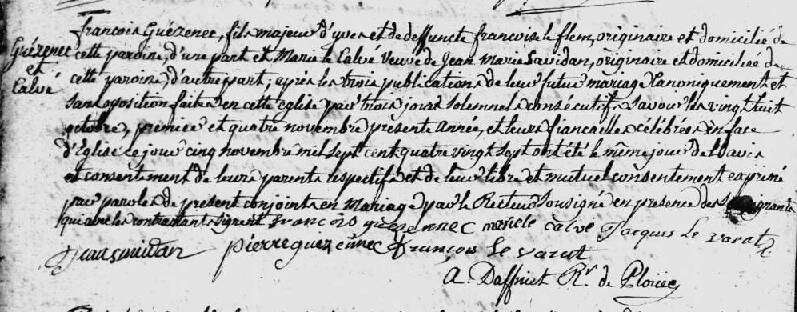 françois Guézenec, fils majeur d'yves et de deffuncte françoise le flem, originaire et domicilié de
Guézenec
et
Calvé
cette paroisse, d'une part et Marie le Calvé veuve de Jean Marie Savidan, originaire et domiciliée de
cette paroisse d'autre part; après les trois publications de leur futur mariage Canoniquement et
sans oposition faites en cette église par trois jours solemnels consécutifs savoir les vingt huit
octobre, premier et quatre novembre présente Année, et leurs fiançailles célébrées en face
d'Eglise le jour cinq novembre mil sept cent quatre vingt sept ont été le même jour de l'avis
et consentement de leurs parents respectifs et de leur libre et mutuel consentement exprimé
par paroles de présent conjoints en Mariage par le Recteur soussigné en présence des
qui avec les contractants signent françois guezennec marie le calvé Jacques le varat
Jean savidan pierre guezennec françois le varat
A. Daffniet Rr. de Ploüe